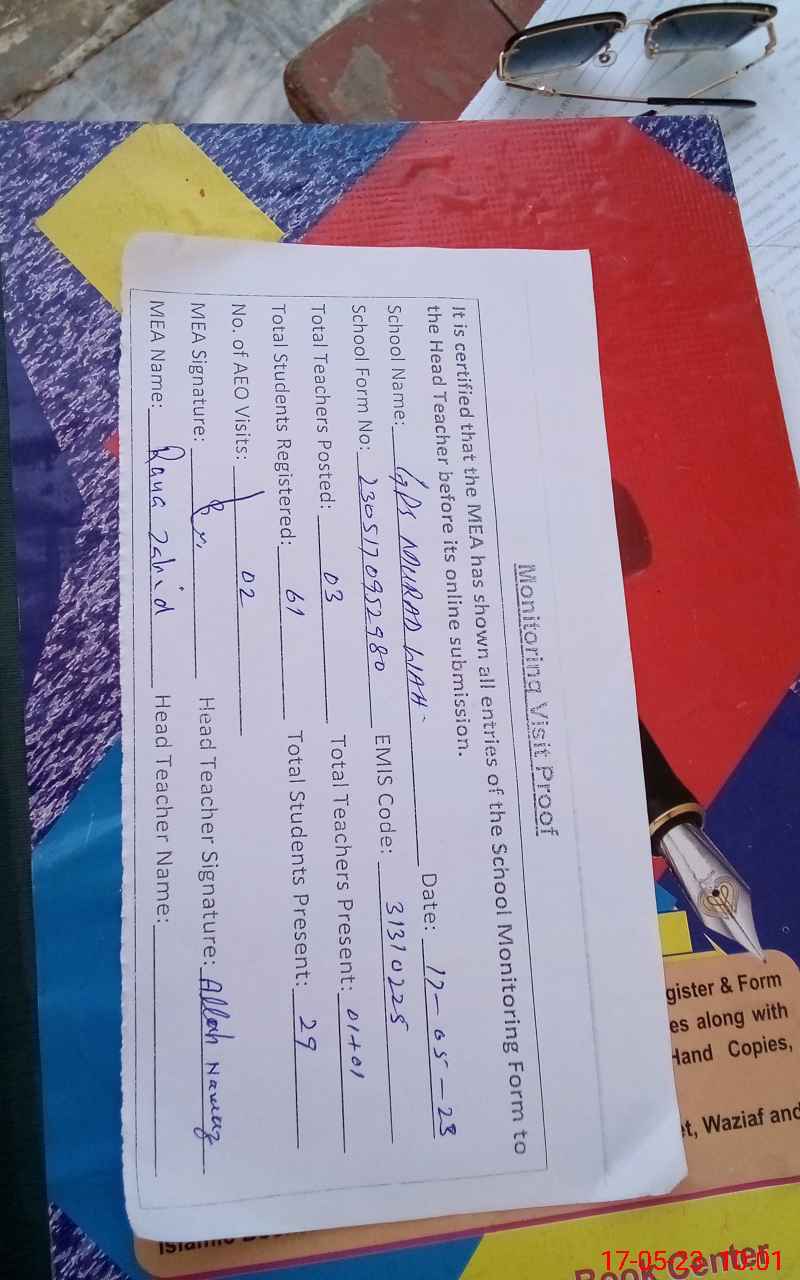 Monitoring Visit Proof
It is certified that the MEA has shown all entries of the School Monitoring Form to
the Head Teacher before its online submission.
School Name: GPS MURAD WAH Date: 17-05-23
School Form No: 2305170952980 EMIS Code: 31310225
Total Teachers Posted: 03 Total Teachers Present: 01+01
Total Students Registered: 61 Total Students Present: 29
No. of AEO Visits: 02
MEA Signature: Head Teacher Signature: Allah Nawaz
MEA Name: Rana Zahid Head Teacher Name:
gister & Form
es along with
Hand Copies,
et, Waziaf and
Book Center
17-05-23 10:01